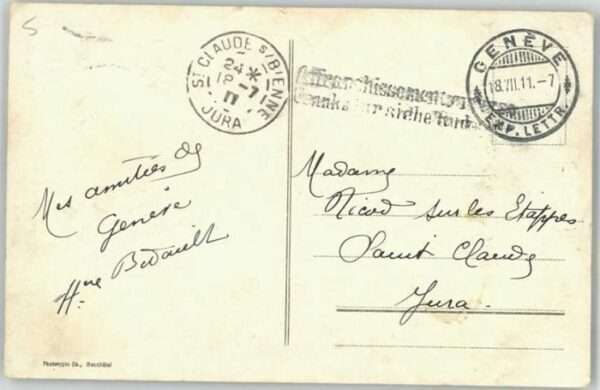 5
ST CLAUDE s/BIENNE
24 *
18 -7
11
JURA
Affranchissement
GENÈVE
18.VII.11.-7
EXP. LETTR.
Mes amitiés de
Genève
Madame
Nicod sur les Etappes
Saint Claude
Jura
Phototypie Co., Neuchâtel